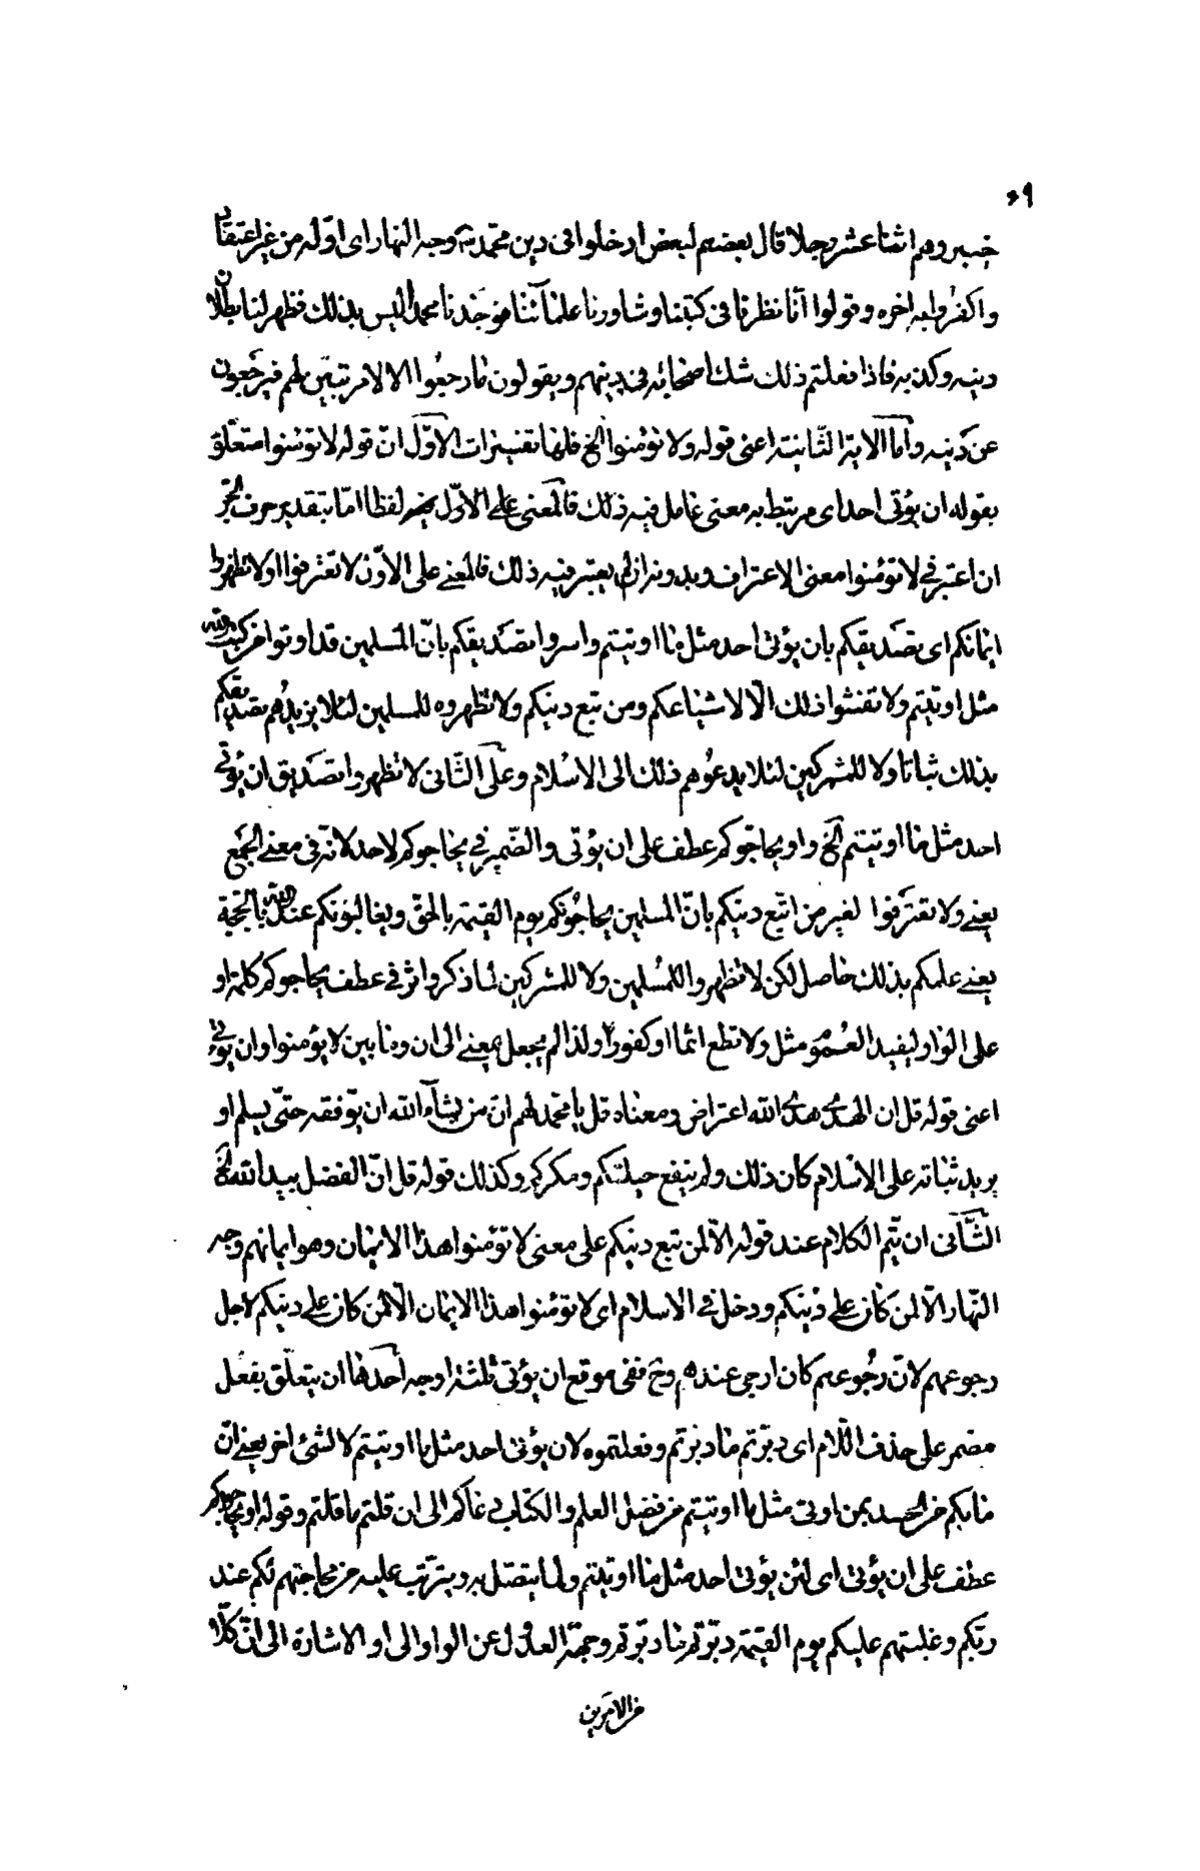 ٦٩
خيبر وهم اثنا عشر رجلا قال بعضهم لبعض ادخلوا فى دين محمد ص وجه النهار اى اوّله من غير اعتقاد
واكفروا به اخره وقولوا انّا نظرنا فى كتبنا وشاورنا علمآئنا فوجدنا محمدا ليس بذلك فظهر لنا بطلان
دينه وكذبه فاذا فعلتم ذلك شك اصحابه فى دينهم ويقولون ما رجعوا الا لامر تبيّن لهم فيرجعون
عن دينه وامّا الاية الثّانية اعنى قوله ولا تؤمنوا الخ فلها تفسيرات الاوّل انّ قوله لا تؤمنوا متعلّق
بقوله ان يؤتى احد اى مرتبط به معنى عامل فيه ذلك فالمعنى على الاوّل لفظا امّا بتقدير حرف الجرّ
ان اعتبر فى لا تؤمنوا معنى الاعتراف وبدونه ان لم يعتبر فيه ذلك فالمعنى على الاوّل لا تعترفوا اولا تظهروا
ايمانكم اى تصديقكم بان يؤتى احد مثل ما اوتيتم واسروا تصديقكم بانّ المسلمين قد اوتوا من كتب الله
مثل اوتيتم ولا تفشوا ذلك الّا لاشياعكم ومن تبع دينكم ولا تظهروه للمسلمين لئلا يزيدهم تصديقكم
بذلك ثباتا ولا للمشركين لئلا يدعوهم ذلك الى الاسلام وعلى الثّانى لا تظهروا تصديق ان يؤتى
احد مثل ما اوتيتم الخ واو يحاجّوكم عطف على ان يؤتى والضّمير فى يحاجوكم لاحد لانّه فى معنى الجمع
يعنى ولا تعترفوا لغير من اتّبع دينكم بانّ المسلمين يحاجّونكم يوم القيمة بالحقّ ويغالبونكم عند الله بالحجّة
يعنى علمكم بذلك حاصل لكن لا تظهروا للمسلمين ولا للمشركين لما ذكر واثر فى عطف يحاجوكم كلمة او
على الواو ليفيد العموم مثل ولا تطع اثما او كفورا ولذا لم يجعل بمعنى الى ان وما بين لا يؤمنوا وان يؤتى
اعنى قوله قل ان الهدى هدى الله اعتراض ومعناه قل يا محمد لهم انّ من يشآء الله ان يّوفقه حتىّ يسلم او
يريد ثباته على الاسلام كان ذلك ولم ينفع حيلتكم ومكركم وكذلك قوله قل انّ الفضل بيد الله الخ
الثّانى ان يّتم الكلام عند قوله الّا لمن تبع دينكم على معنى لا تؤمنوا هذا الايمان وهو ايمانهم وجه
النّهار الّا لمن كان على دينكم ودخل فى الاسلام اى لا تؤمنوا هذا الايمان الّا لمن كان على دينكم لاجل
رجوعهم لانّ رجوعهم كان ارجى عندهم وح ففى موقع ان يؤتى ثلثة اوجه احدها ان يتعلّق بفعل
مضمر على حذف اللّام اى دبّرتم ما دبّرتم وفعلتموه لان يؤتى احد مثل ما اوتيتم لا لشئ اخر يعنى انّ
ما بكم من الحسد بمن اوتى مثل ما اوتيتم من فضل العلم والكتاب دعاكم الى ان قلتم ما قلتم وقوله او يحاجّوكم
عطف على ان يؤتى اى لئن يؤتى احد مثل ما اوتيتم ولما يتصّل به ويترتب عليه من محاجتهم لكم عند
ربّكم وغلبتهم عليكم يوم القيمة دبّرتم ما دبّرتم وجهة العدول عن الواو الى او الاشارة الى انّ كلّا
من الامرين